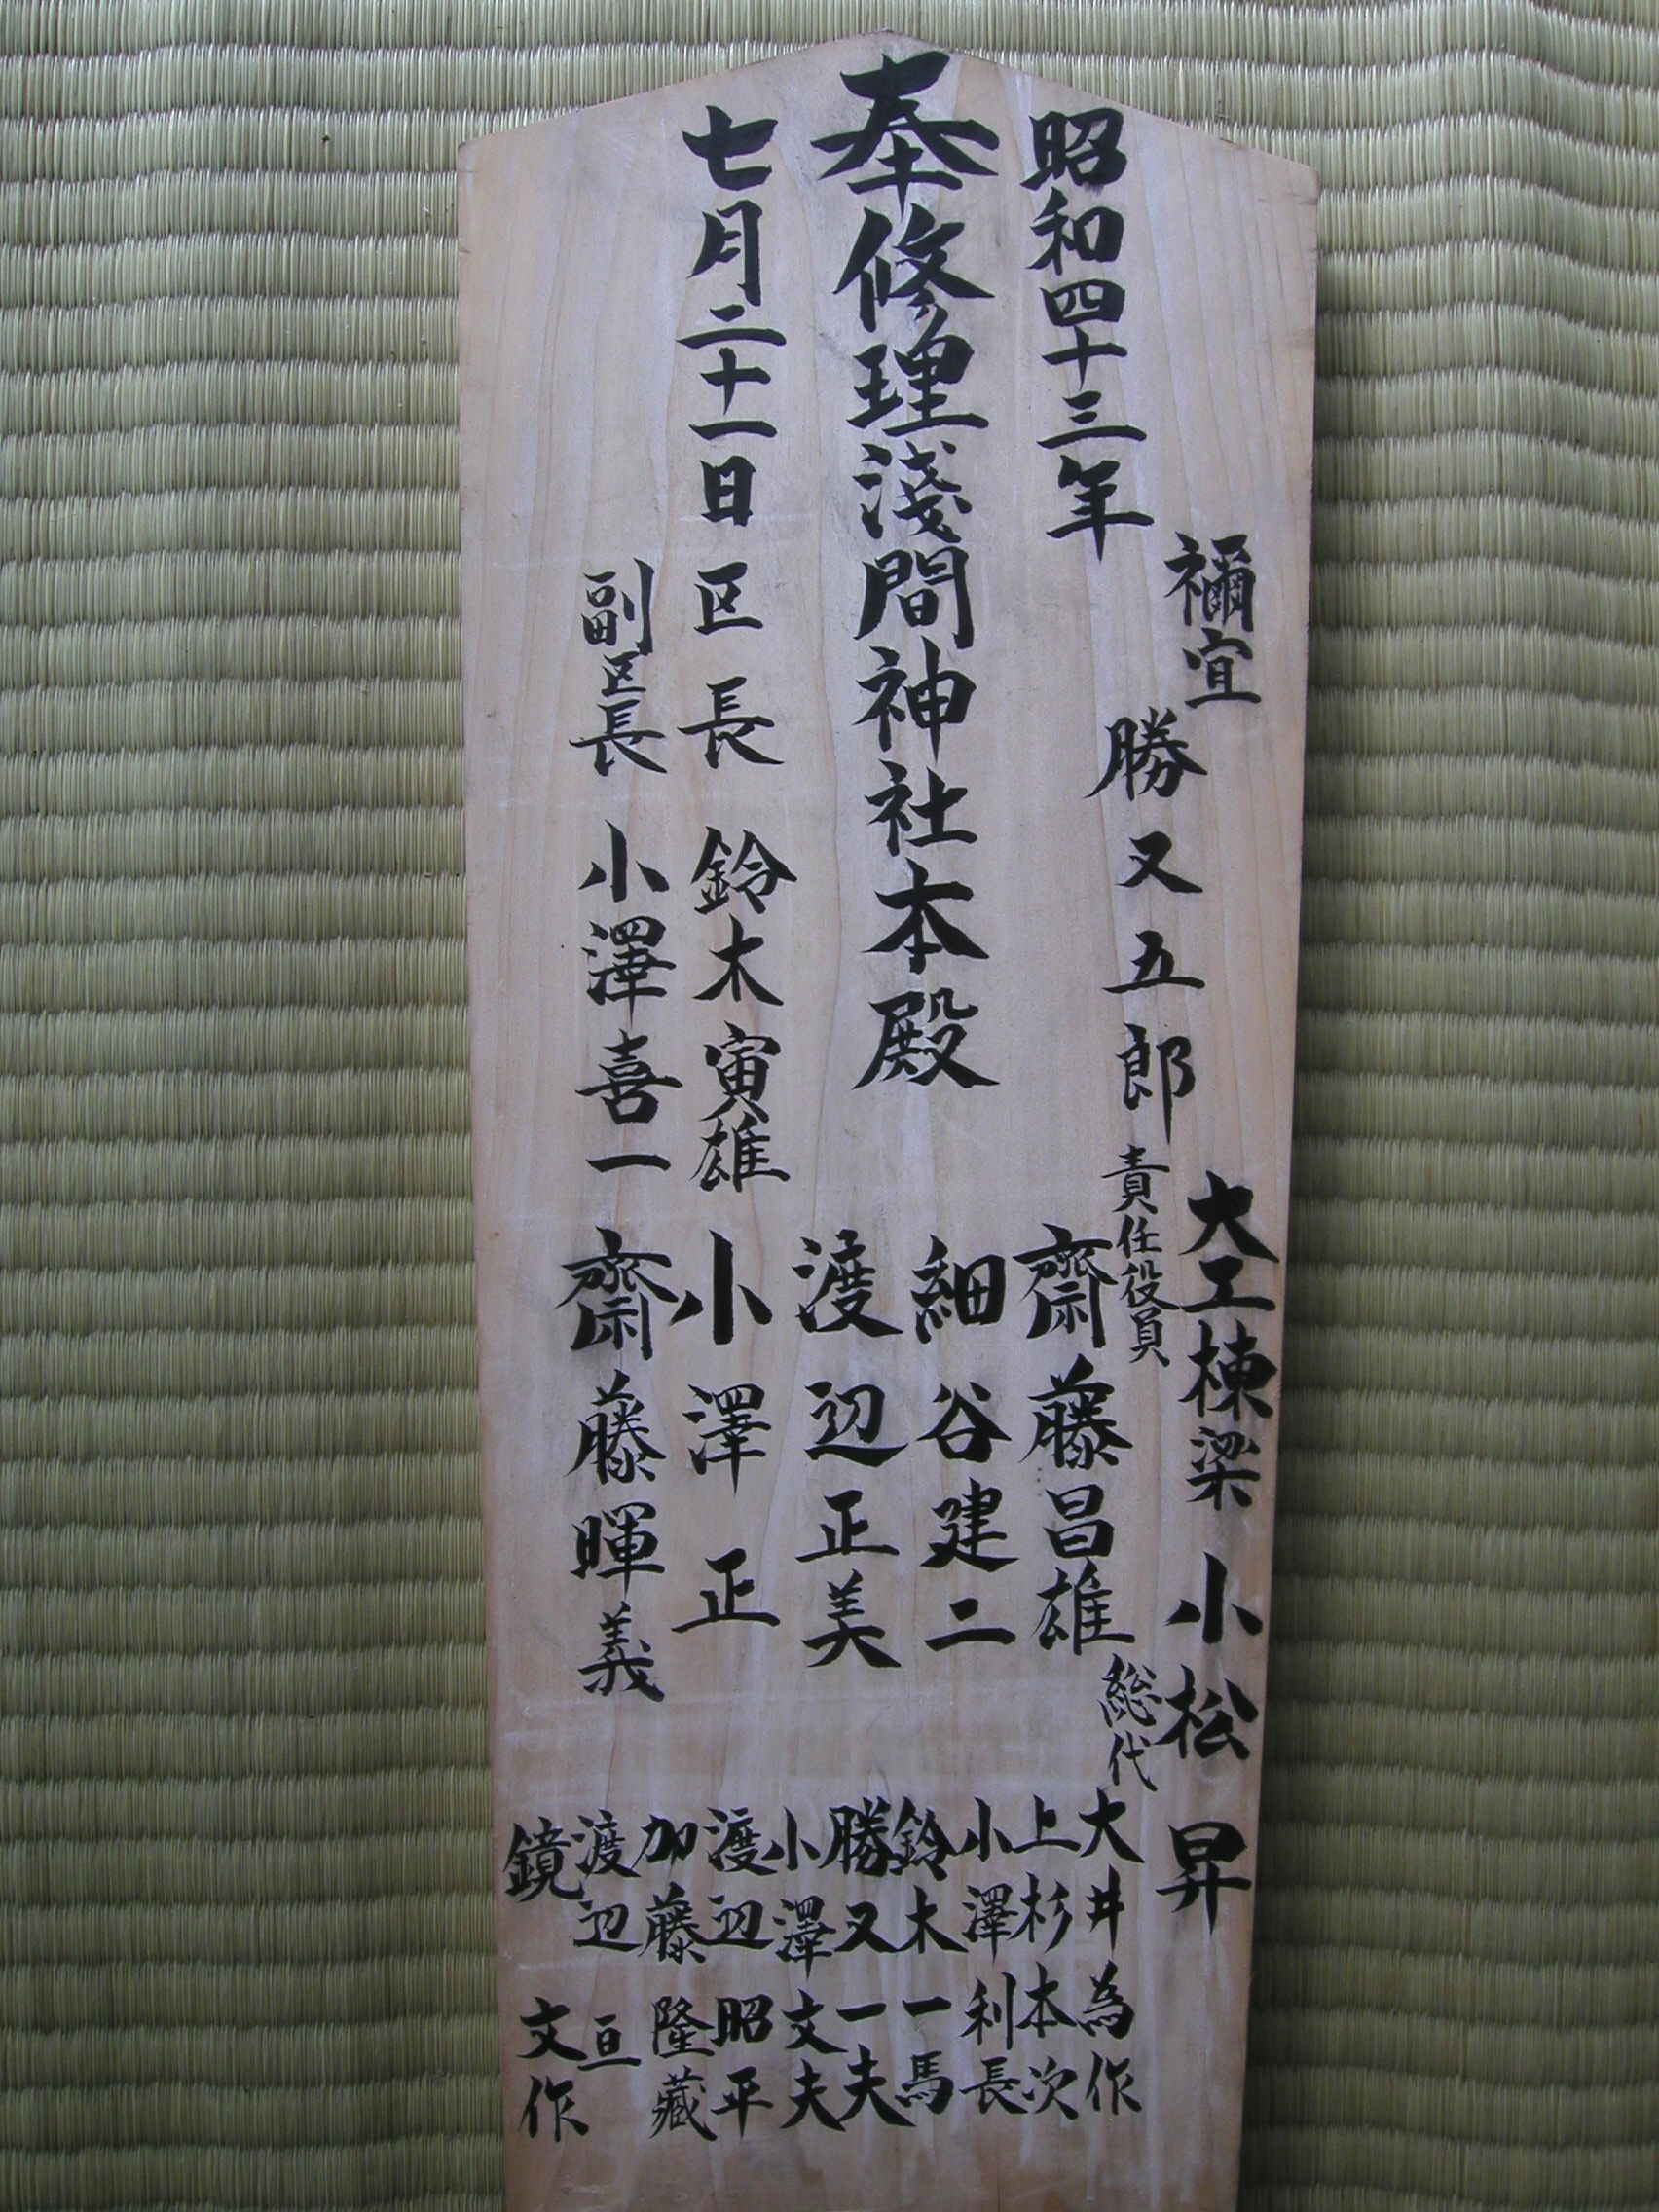 奉修理淺間神社本殿
昭和四十三年
七月二十一日
禰宜 勝又五郎
区長 鈴木寅雄
副区長 小澤喜一
大工棟梁 小松昇
責任役員
齋藤昌雄
細谷建二
渡辺正美
小澤正
齋藤暉義
総代
大井為作
上杉本次
小澤利長
鈴木一馬
勝又一夫
小澤文夫
渡辺昭平
加藤隆藏
渡辺亘
鏡文作